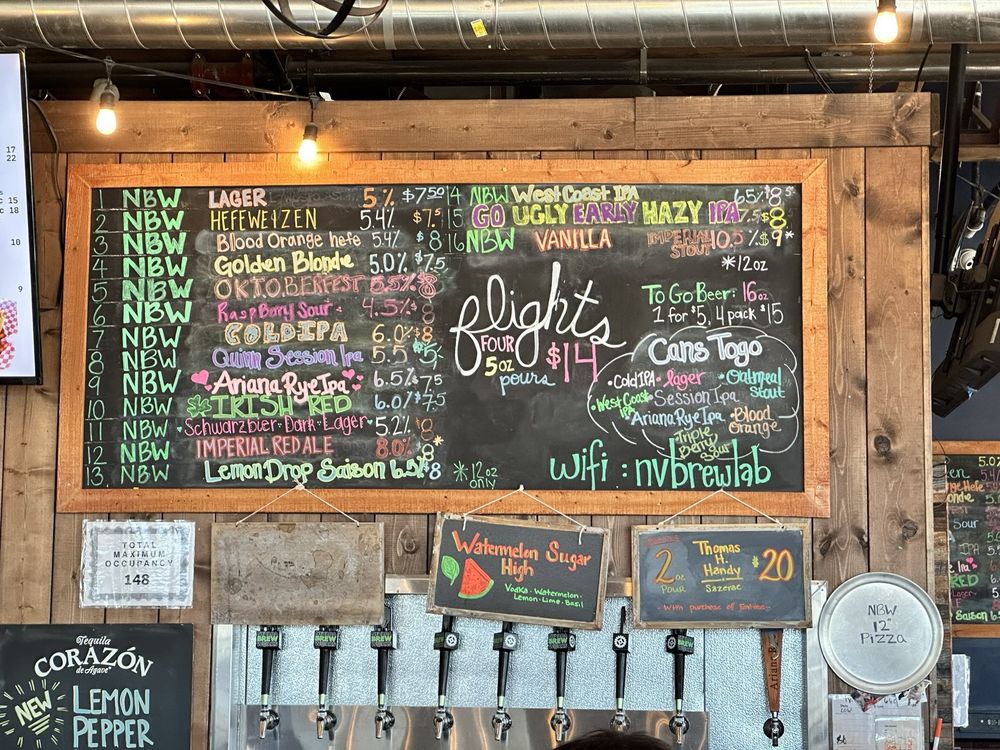 1 NBW LAGER 5% $7.50
2 NBW HEFEWEIZEN 5.4% $7.5
3 NBW Blood Orange hefe 5.4% $8
4 NBW Golden Blonde 5.0% $7.5
5 NBW OKTOBERFEST 5.5% $8
6 NBW RaspBerry Sour 4.5% $8
7 NBW COLD IPA 6.0% $8
8 NBW Quinn Session Ipa 5.5
9 NBW Ariana Rye Ipa 6.5% $7.5
10 NBW IRISH RED 6.0% $7.5
11 NBW Schwarzbier Dark Lager 5.2%
12 NBW IMPERIAL RED ALE 8.0%
13 NBW Lemon Drop Saison 6.5% $8
*12oz only
14 NBW West Coast IPA 6.5% $8.5
15 GO UGLY EARLY HAZY IPA 7.5% $8
16 NBW VANILLA IMPERIAL STOUT 10.5% $9*
*12oz
flights
FOUR
5oz
pours
$14
To Go Beer: 16oz
1 for $5, 4 pack $15
Cans Togo
•Cold IPA •lager •Oatmeal Stout
•West Coast IPA •Session Ipa
•Ariana Rye Ipa •Blood Orange
•Triple Berry Sour
wifi : nvbrewlab
TOTAL
MAXIMUM
OCCUPANCY
148
Watermelon Sugar
High
Vodka·Watermelon·
Lemon·Lime·Basil
2 oz
POUR
Thomas
H.
Handy
Sazerac
$20
NBW
12"
Pizza
Tequila
CORAZÓN
de Agave
NEW
LEMON
PEPPER
BREW
Ariana R